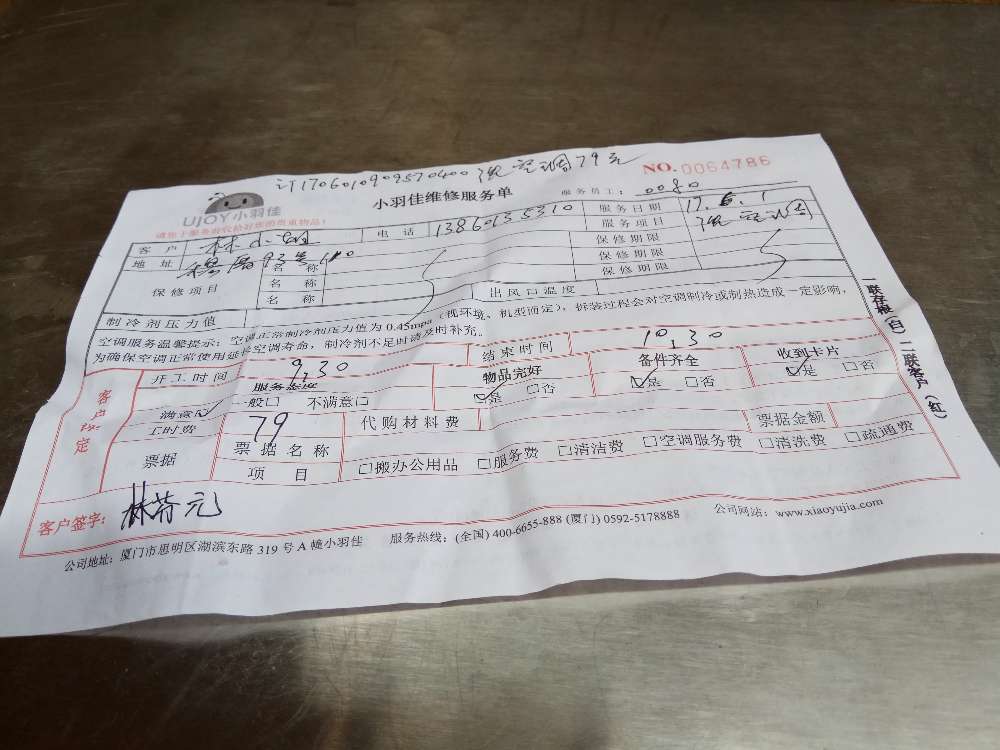 计1706010909570400 洗空调79元
NO.0064786
UJOY小羽佳
小羽佳维修服务单
服务员工： 0080
请您于服务前收拾好您的贵重物品！
客户 林小姐 电话 13860135310 服务日期 17.6.1
地址 服务项目 洗空调
保修项目 名称 保修期限
名称 保修期限
名称 保修期限
制冷剂压力值 出风口温度
空调服务温馨提示：空调正常制冷剂压力值为 0.45mpa（视环境、机型而定），拆装过程会对空调制冷或制热造成一定影响，
为确保空调正常使用延长空调寿命，制冷剂不足时请及时补充。
开工时间 9,30 结束时间 10,30
客户
服务态度 物品完好 备件齐全 收到卡片
满意☑ 一般□ 不满意□ ☑是 □否 ☑是 □否 ☑是 □否
工时费 79 代购材料费 票据金额
票据 票据名称
项目 □搬办公用品 □服务费 □清洁费 □空调服务费 □清洗费 □疏通费
客户签字： 林芬元
公司地址：厦门市思明区湖滨东路 319 号 A 幢小羽佳 服务热线：(全国) 400-6655-888 (厦门) 0592-5178888 公司网站：www.xiaoyujia.com
一联存根（白）二联客户（红）